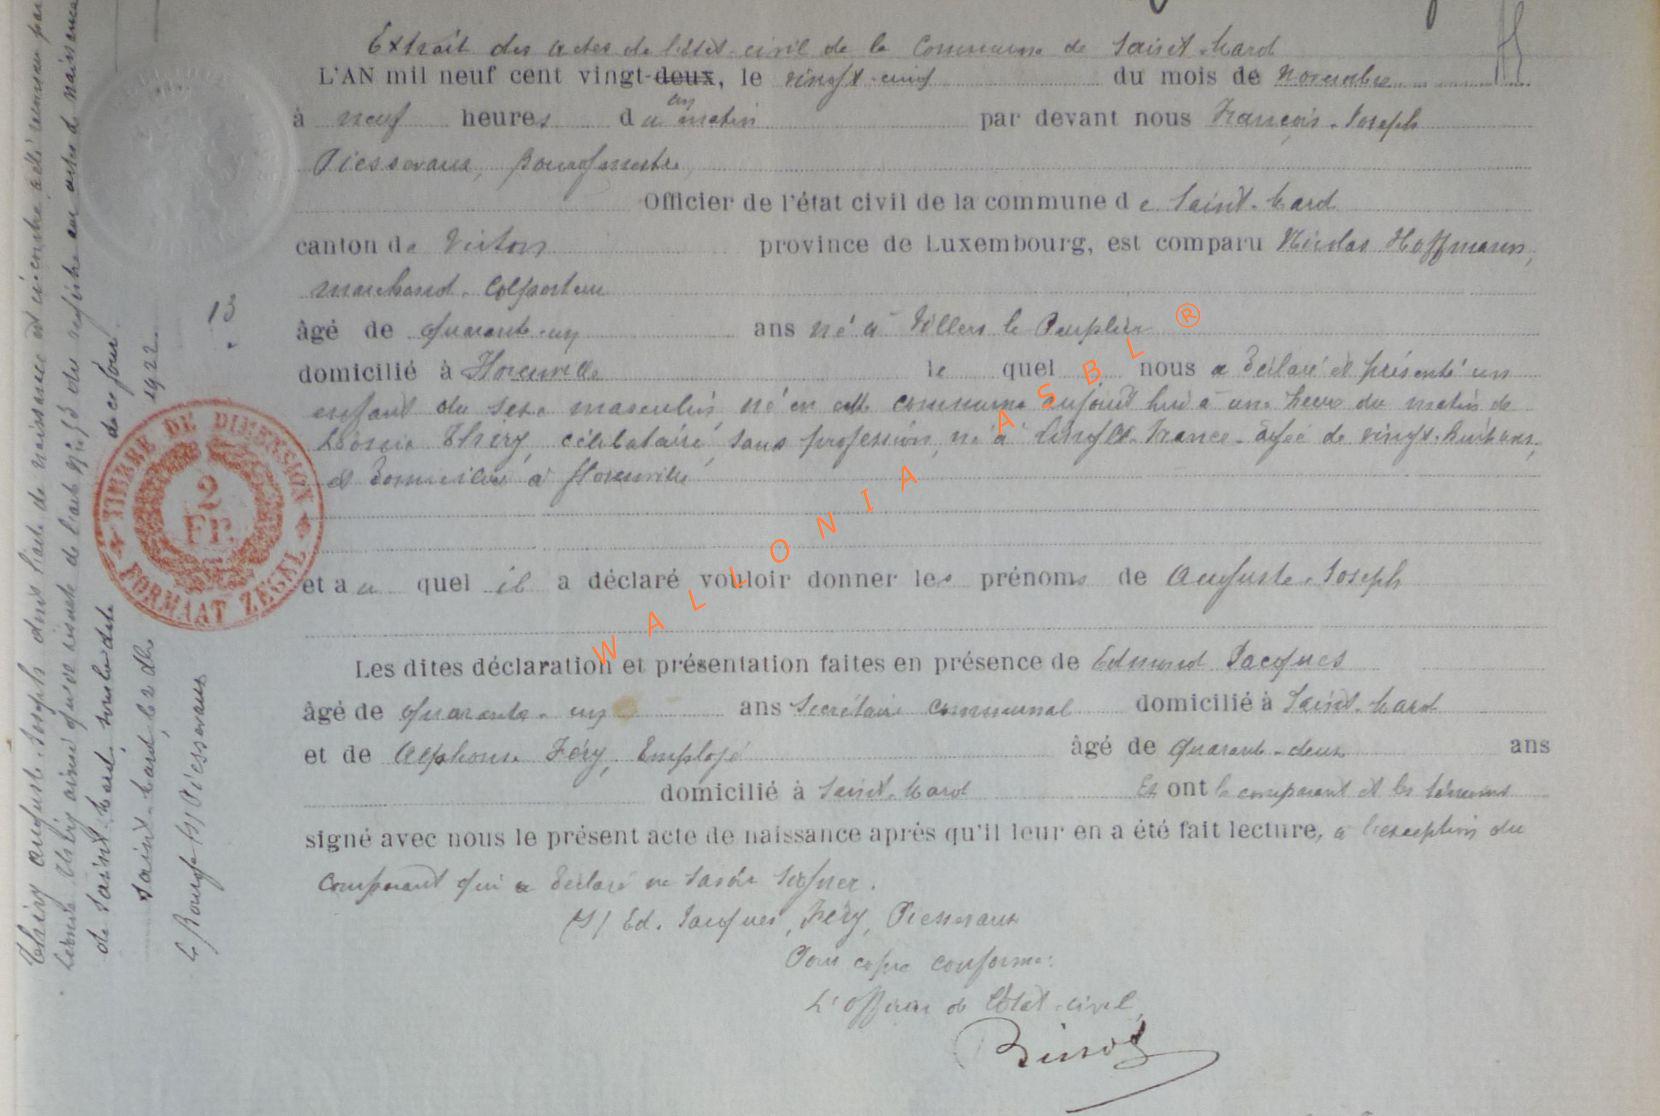 Extrait des actes de l'état-civil de la Commune de Saint-Mard
L'AN mil neuf cent vingt-deux, le vingt-cinq du mois de Novembre
à neuf heures du matin par devant nous François-Joseph
Piesseraux, Bourgmestre
Officier de l'état civil de la commune de Saint-Mard
canton de Virton province de Luxembourg, est comparu Nicolas Hoffmann,
marchand-Colporteur
âgé de quarante-un ans né à Villers le Peuplier
domicilié à Florenville le quel nous a déclaré et présenté un
enfant du sexe masculin né en cette commune aujourd'hui à une heure du matin de
Léonie Thiry, célibataire, sans profession, née à France-âgée de vingt-huit ans,
et domiciliée à Florenville
et au quel il a déclaré vouloir donner les prénoms de Auguste-Joseph
Les dites déclaration et présentation faites en présence de Edmond Jacques
âgé de quarante-un ans Secrétaire communal domicilié à Saint-Mard
et de Alphonse Féry, Employé âgé de quarante-deux ans
domicilié à Saint-Mard Et ont le comparant et les témoins
signé avec nous le présent acte de naissance après qu'il leur en a été fait lecture, à l'exception du
comparant qui a déclaré ne savoir signer.
(s) Ed. Jacques, Féry, Piesseraux
Pour copie conforme:
L'officier de l'Etat-civil,
Thiry Auguste-Joseph dont l'acte de naissance est ci-contre a été reconnu par
Léonie Thiry ainsi qu'il résulte de l'acte du registre aux actes de naissance
de Saint-Mard, sous la date de ce jour.
Saint-Mard, le 2 1922
Le Bourgm (s) Piesseraux
13
TIMBRE DE DIMENSION
2 Fr.
FORMAAT ZEGEL
WALLONIA ASBL ®